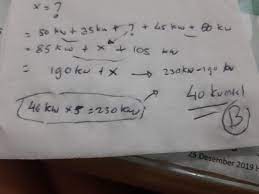 x = ?
= 50 kw + 35 kw + ? + 45 kw + 60 kw
= 85 kw + x + 105 kw
= 190 kw + x → 230 kw - 190 kw
46 kw x 5 = 230 kw
40
B
25 Desember 2019